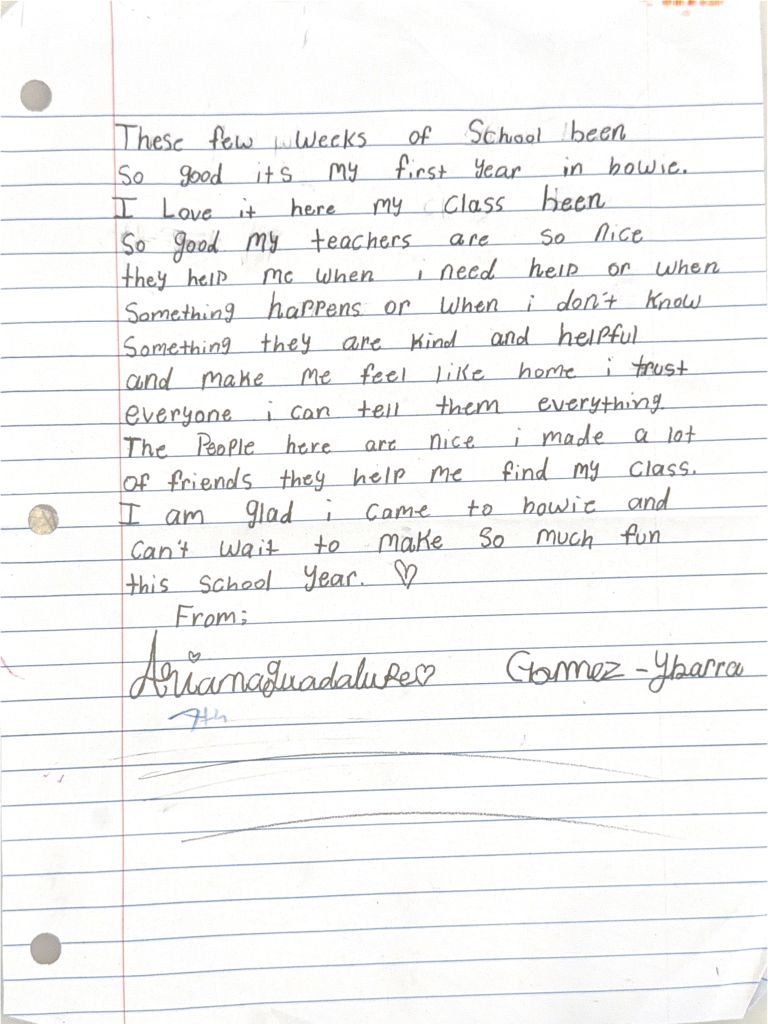 These few Weeks of School been
So good its my first year in bowie.
I Love it here my class been
So good my teachers are so nice
they help me when i need help or when
Something happens or when i don't know
Something they are kind and helpful
and make me feel like home i trust
everyone i can tell them everything.
The People here are nice i made a lot
of friends they help me find my class.
I am glad i came to bowie and
can't wait to make so much fun
this school year. ♡
From;
Arianaguadalupe♡ Gomez-Ybarra
7th